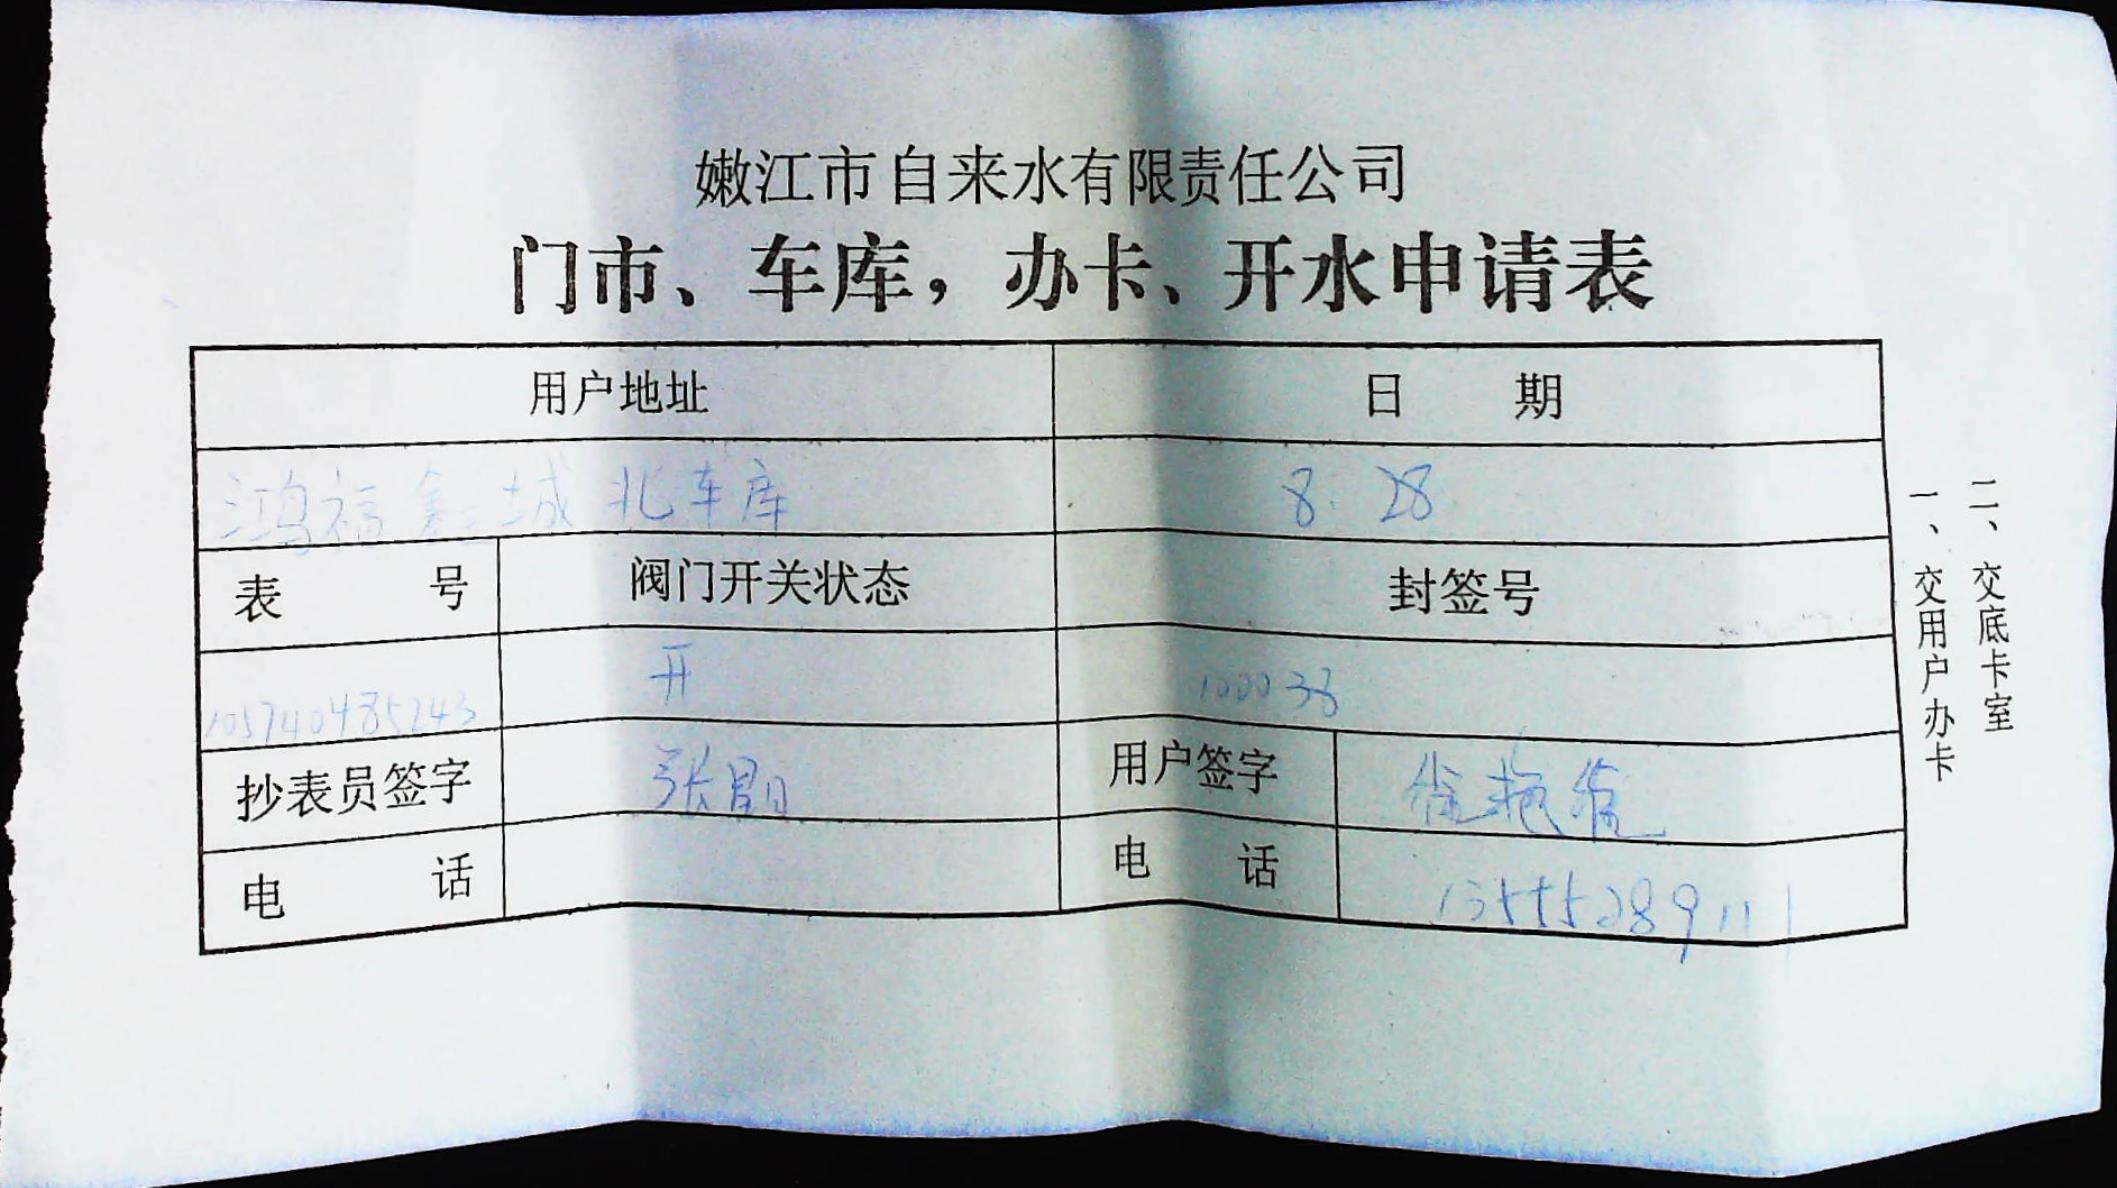 嫩江市自来水有限责任公司
门市、车库，办卡、开水申请表
用户地址 日 期
鸿福鑫城北车库 8. 28
表 号 阀门开关状态 封签号
105740485243 开 100038
抄表员签字 张明 用户签字
电 话 电 话 13555289111
一、交用户办卡
二、交底卡室